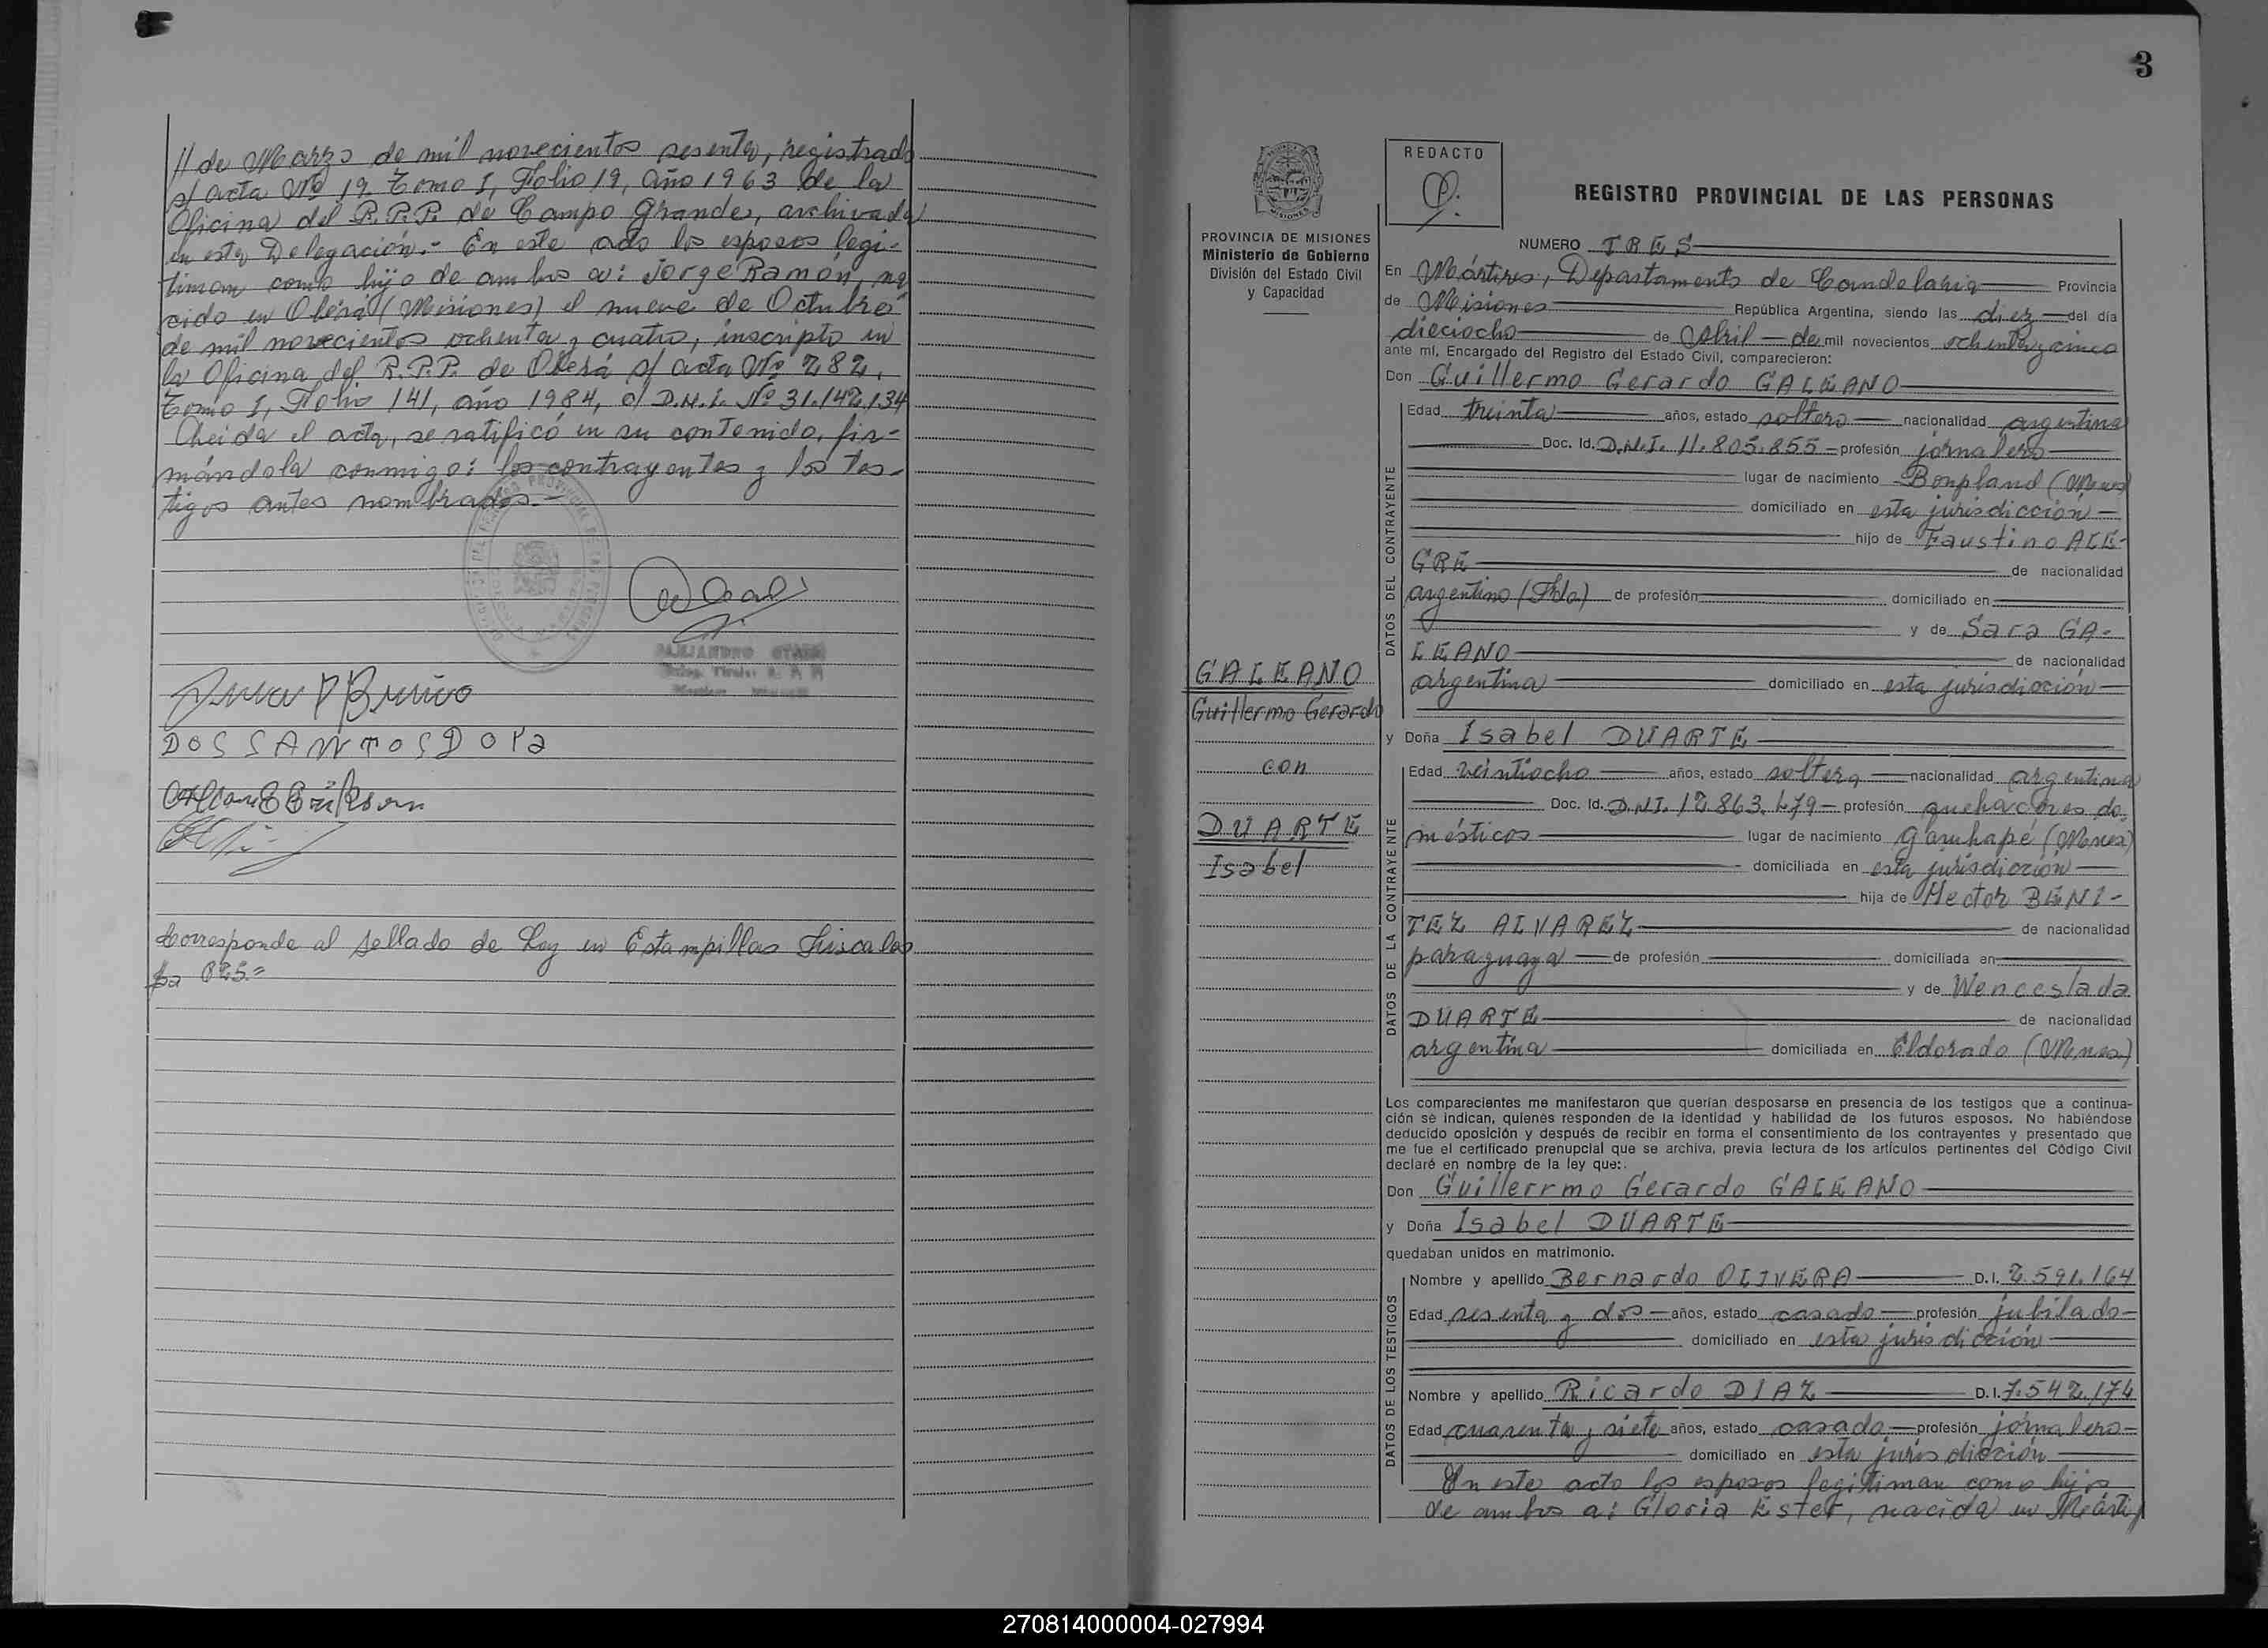 // de Marzo de mil novecientos sesenta, registrado
s/ acta Nº 19 Tomo I, Folio 19, año 1963 de la
Oficina del R.P.P. de Campo Grande, archivada
en esta Delegación.- En este acto los esposos legi-
timan como hijo de ambos a: Jorge Ramón, na
cido en Oberá (Misiones) el nueve de Octubre
de mil novecientos ochenta y cuatro, inscripto en
la Oficina del R.P.P. de Oberá s/ acta Nº 282,
Tomo I, Folio 141, año 1984, c/ D.N.I. Nº 31.142.134
Leida el acta, se ratificó en su contenido, fir-
mándola conmigo: los contrayentes y los tes-
tigos antes nombrados.-
DOS SANTOS DORA
Corresponde al sellado de Ley en Estampillas Fiscales
$a 825.=
3
PROVINCIA DE MISIONES
Ministerio de Gobierno
División del Estado Civil
y Capacidad
GALEANO
Guillermo Gerardo
con
DUARTE
Isabel
REDACTO
REGISTRO PROVINCIAL DE LAS PERSONAS
NUMERO TRES
En Mártires, Departamento de Candelaria Provincia
de Misiones República Argentina, siendo las diez del día
dieciocho de Abril de mil novecientos ochenta y cinco
ante mí, Encargado del Registro del Estado Civil, comparecieron:
Don Guillermo Gerardo GALEANO
DATOS DEL CONTRAYENTE
Edad treinta años, estado soltero nacionalidad argentina
Doc. Id. D.N.I. 11.805.855 - profesión jornalero
lugar de nacimiento Bonpland (Mnes)
domiciliado en esta jurisdicción
hijo de Faustino ALE-
GRE de nacionalidad
argentino (Fdo.) de profesión domiciliado en
y de Sara GA-
LEANO de nacionalidad
argentina domiciliado en esta jurisdicción
y Doña Isabel DUARTE
DATOS DE LA CONTRAYENTE
Edad veintiocho años, estado soltera nacionalidad argentina
Doc. Id. D.N.I. 12.863.479 - profesión quehaceres do-
mésticos lugar de nacimiento Garuhapé (Mnes)
domiciliada en esta jurisdicción
hija de Hector BENI-
TEZ ALVAREZ de nacionalidad
paraguaya de profesión domiciliada en
y de Wenceslada
DUARTE de nacionalidad
argentina domiciliada en Eldorado (Mnes.)
Los comparecientes me manifestaron que querían desposarse en presencia de los testigos que a continua-
ción se indican, quienes responden de la identidad y habilidad de los futuros esposos. No habiéndose
deducido oposición y después de recibir en forma el consentimiento de los contrayentes y presentado que
me fue el certificado prenupcial que se archiva, previa lectura de los artículos pertinentes del Código Civil
declaré en nombre de la ley que:.
Don Guillerrmo Gerardo GALEANO
y Doña Isabel DUARTE
quedaban unidos en matrimonio.
DATOS DE LOS TESTIGOS
Nombre y apellido Bernardo OLIVERA D.I. 2.591.164
Edad sesenta y dos años, estado casado profesión jubilado
domiciliado en esta jurisdicción
Nombre y apellido Ricardo DIAZ D.I. 7.542.174
Edad cuarenta y siete años, estado casado profesión jornalero
domiciliado en esta jurisdicción
En este acto los esposos legitiman como hijos
de ambos a: Gloria Ester, nacida en Márti
270814000004-027994